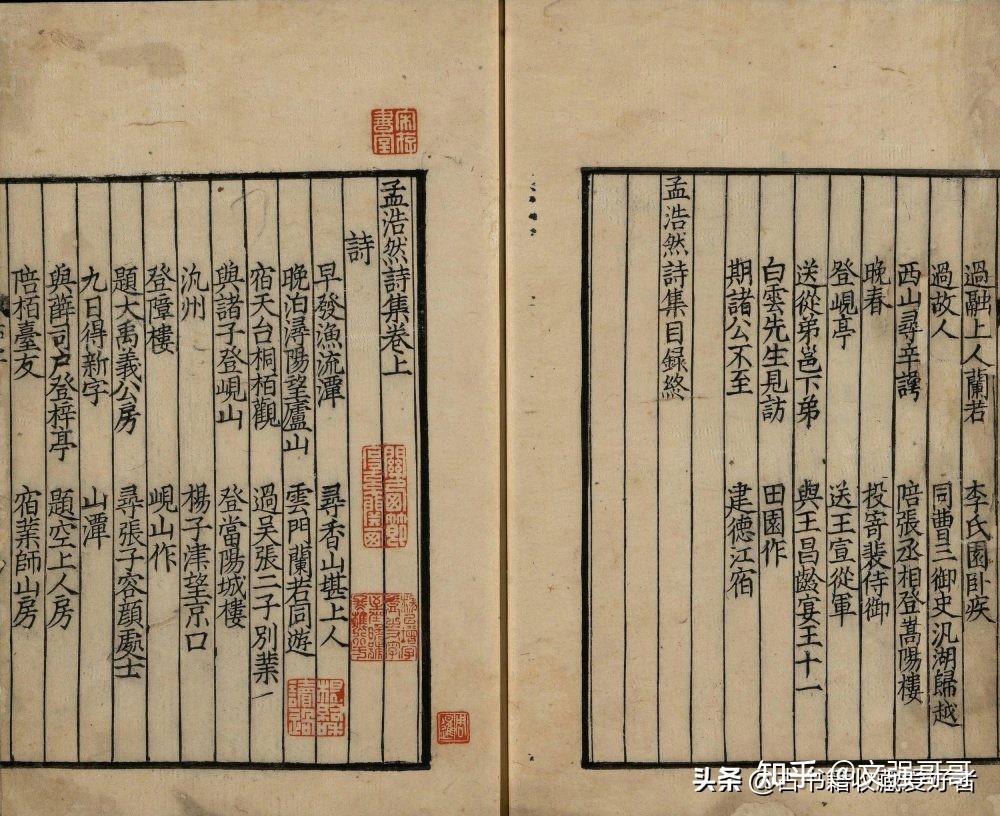 過融上人蘭若 李氏園卧疾
過故人 同曹三御史汎湖歸越
西山尋辛諤 陪張丞相登嵩陽樓
晚春 投寄裴侍御
登峴亭 送王宣從軍
送從弟邕下弟 與王昌齡宴王十一
白雲先生見訪 田園作
期諸公不至 建德江宿
孟浩然詩集目録終
孟浩然詩集卷上
詩
早發漁流潭 尋香山堪上人
晚泊潯陽望廬山 雲門蘭若同遊
宿天台桐栢觀 過吴張二子别業
與諸子登峴山 登當陽城樓
氿州 楊子津望京口
登障樓 峴山作
題大禹義公房 尋張子容顔處士
九日得新字 山潭
與薛司户登梓亭 題空上人房
陪栢臺友 宿業師山房
头条 @古书籍收藏爱好者
知乎 @文强哥哥